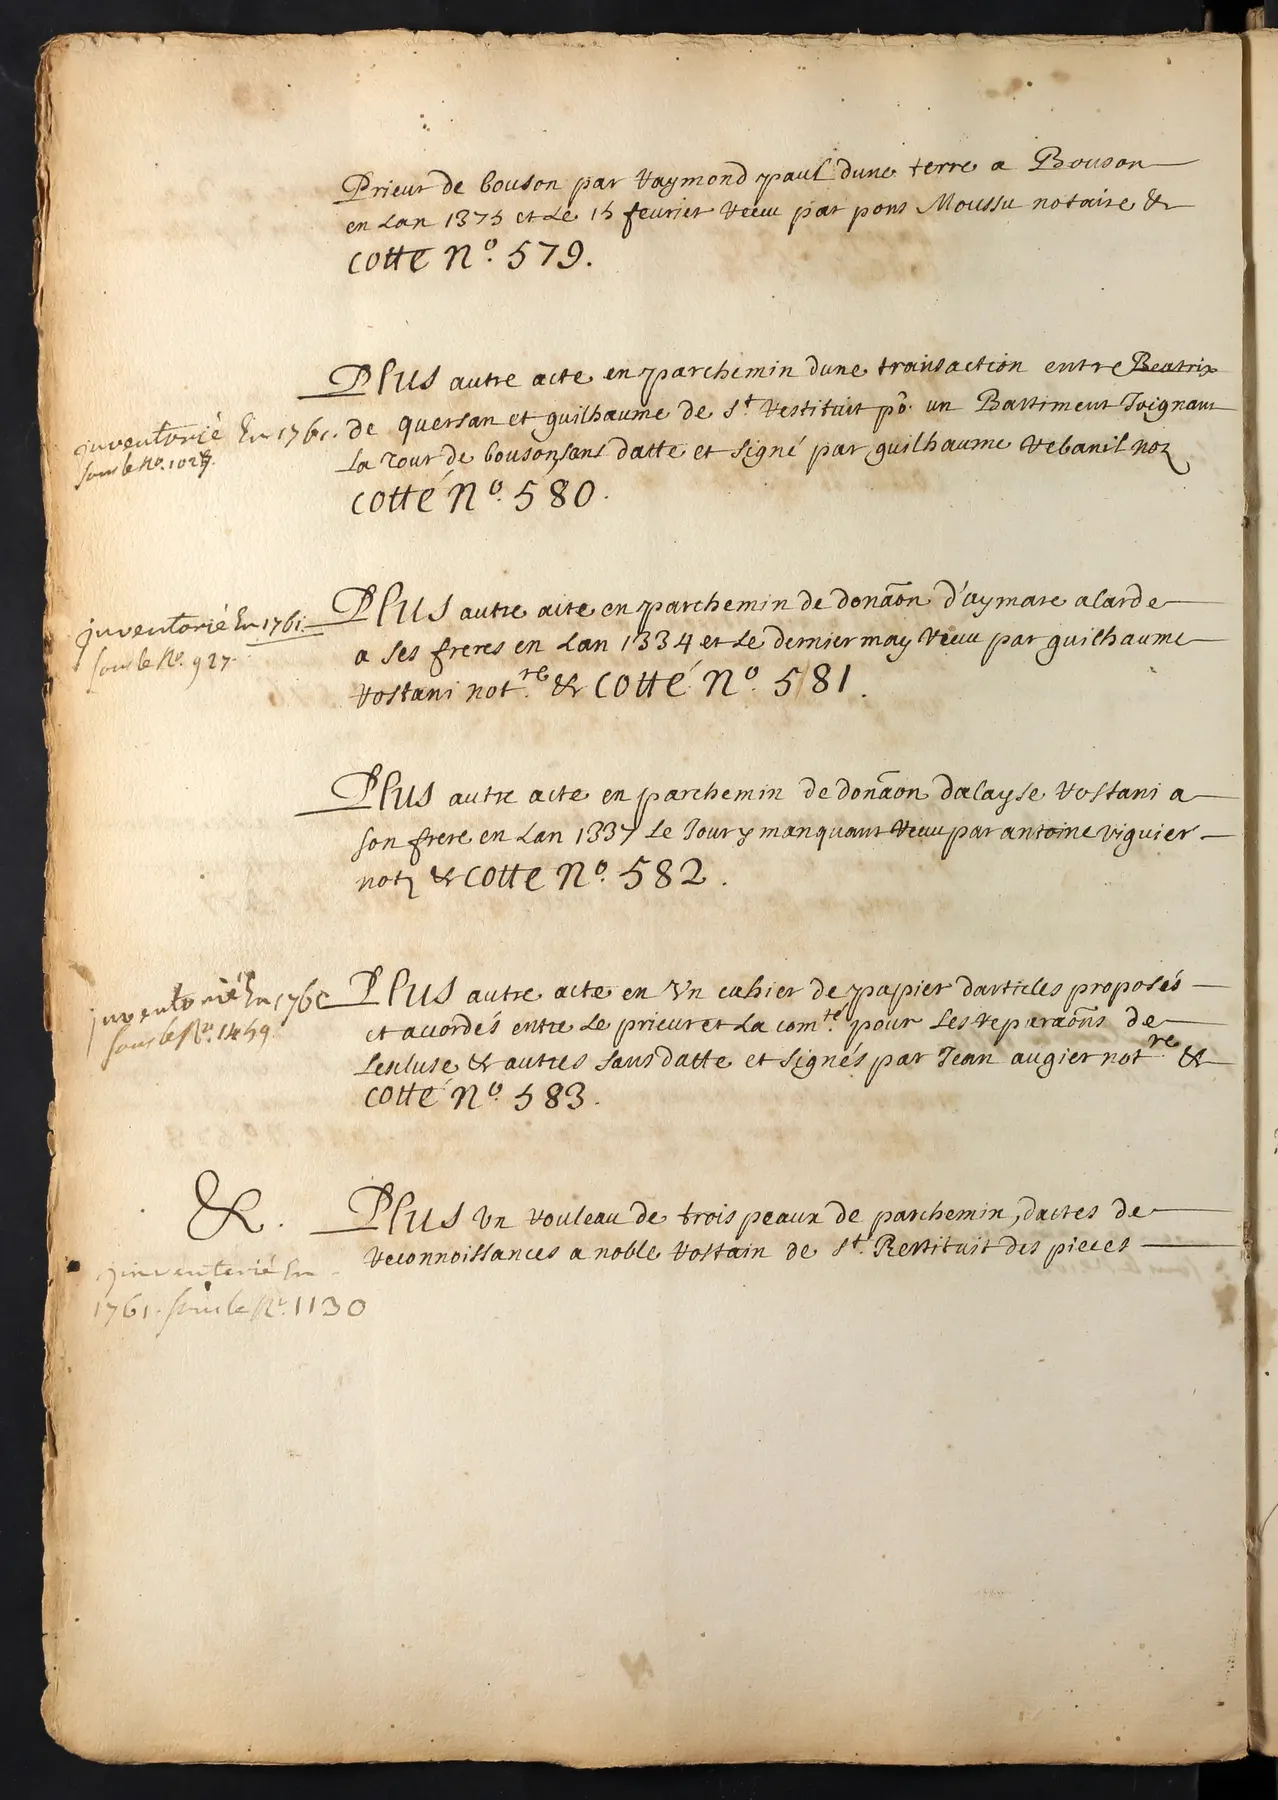 Prieur de bouson par Raymond paul dune terre a Bouson
en Lan 1375 et Le 15 feurier Receu par pons Moussu notaire &
cotte N.º 579.
PLUS autre acte en parchemin dune transaction entre Beatrix
inventorié En 1761.
sous le No. 1028.
de quersan et guilhaume de St. Restituit po. un Bastiment Joignant
La Tour de bouson, sans datte et signé par guilhaume Rebanil no
cotté N.º 580.
PLUS autre acte en parchemin de donāon d'aymare alarde
inventorié En 1761.
sous le No. 927.
a ses freres en Lan 1334 et Le dernier may Receu par guilhaume
Rostani not.re & cotté N.º 581.
PLUS autre acte en parchemin de donāon dalayse Rostani a
son frere en Lan 1337 Le Jour y manquant Receu par antoine viguier
not & cotte N.º 582.
PLUS autre acte en Vn cahier de papier darticles proposés
inventorié En 1761
sous le No. 1459.
et acordés entre Le prieur et La com.te pour Les reparaōns de
Lesluse & autres sans datte et signés par Jean augier not.re &
cotté N.º 583.
&.
PLUS Vn Rouleau de trois peaux de parchemin, dactes de
Reconnoissances a noble Rostain de St. Restituit des pieces
inventorié En
1761. sous le No. 1130